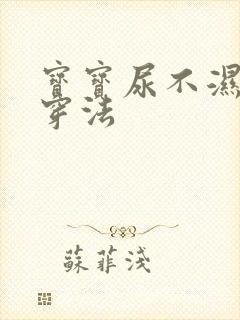 寶寶尿不濕
穿法
蘇菲淺